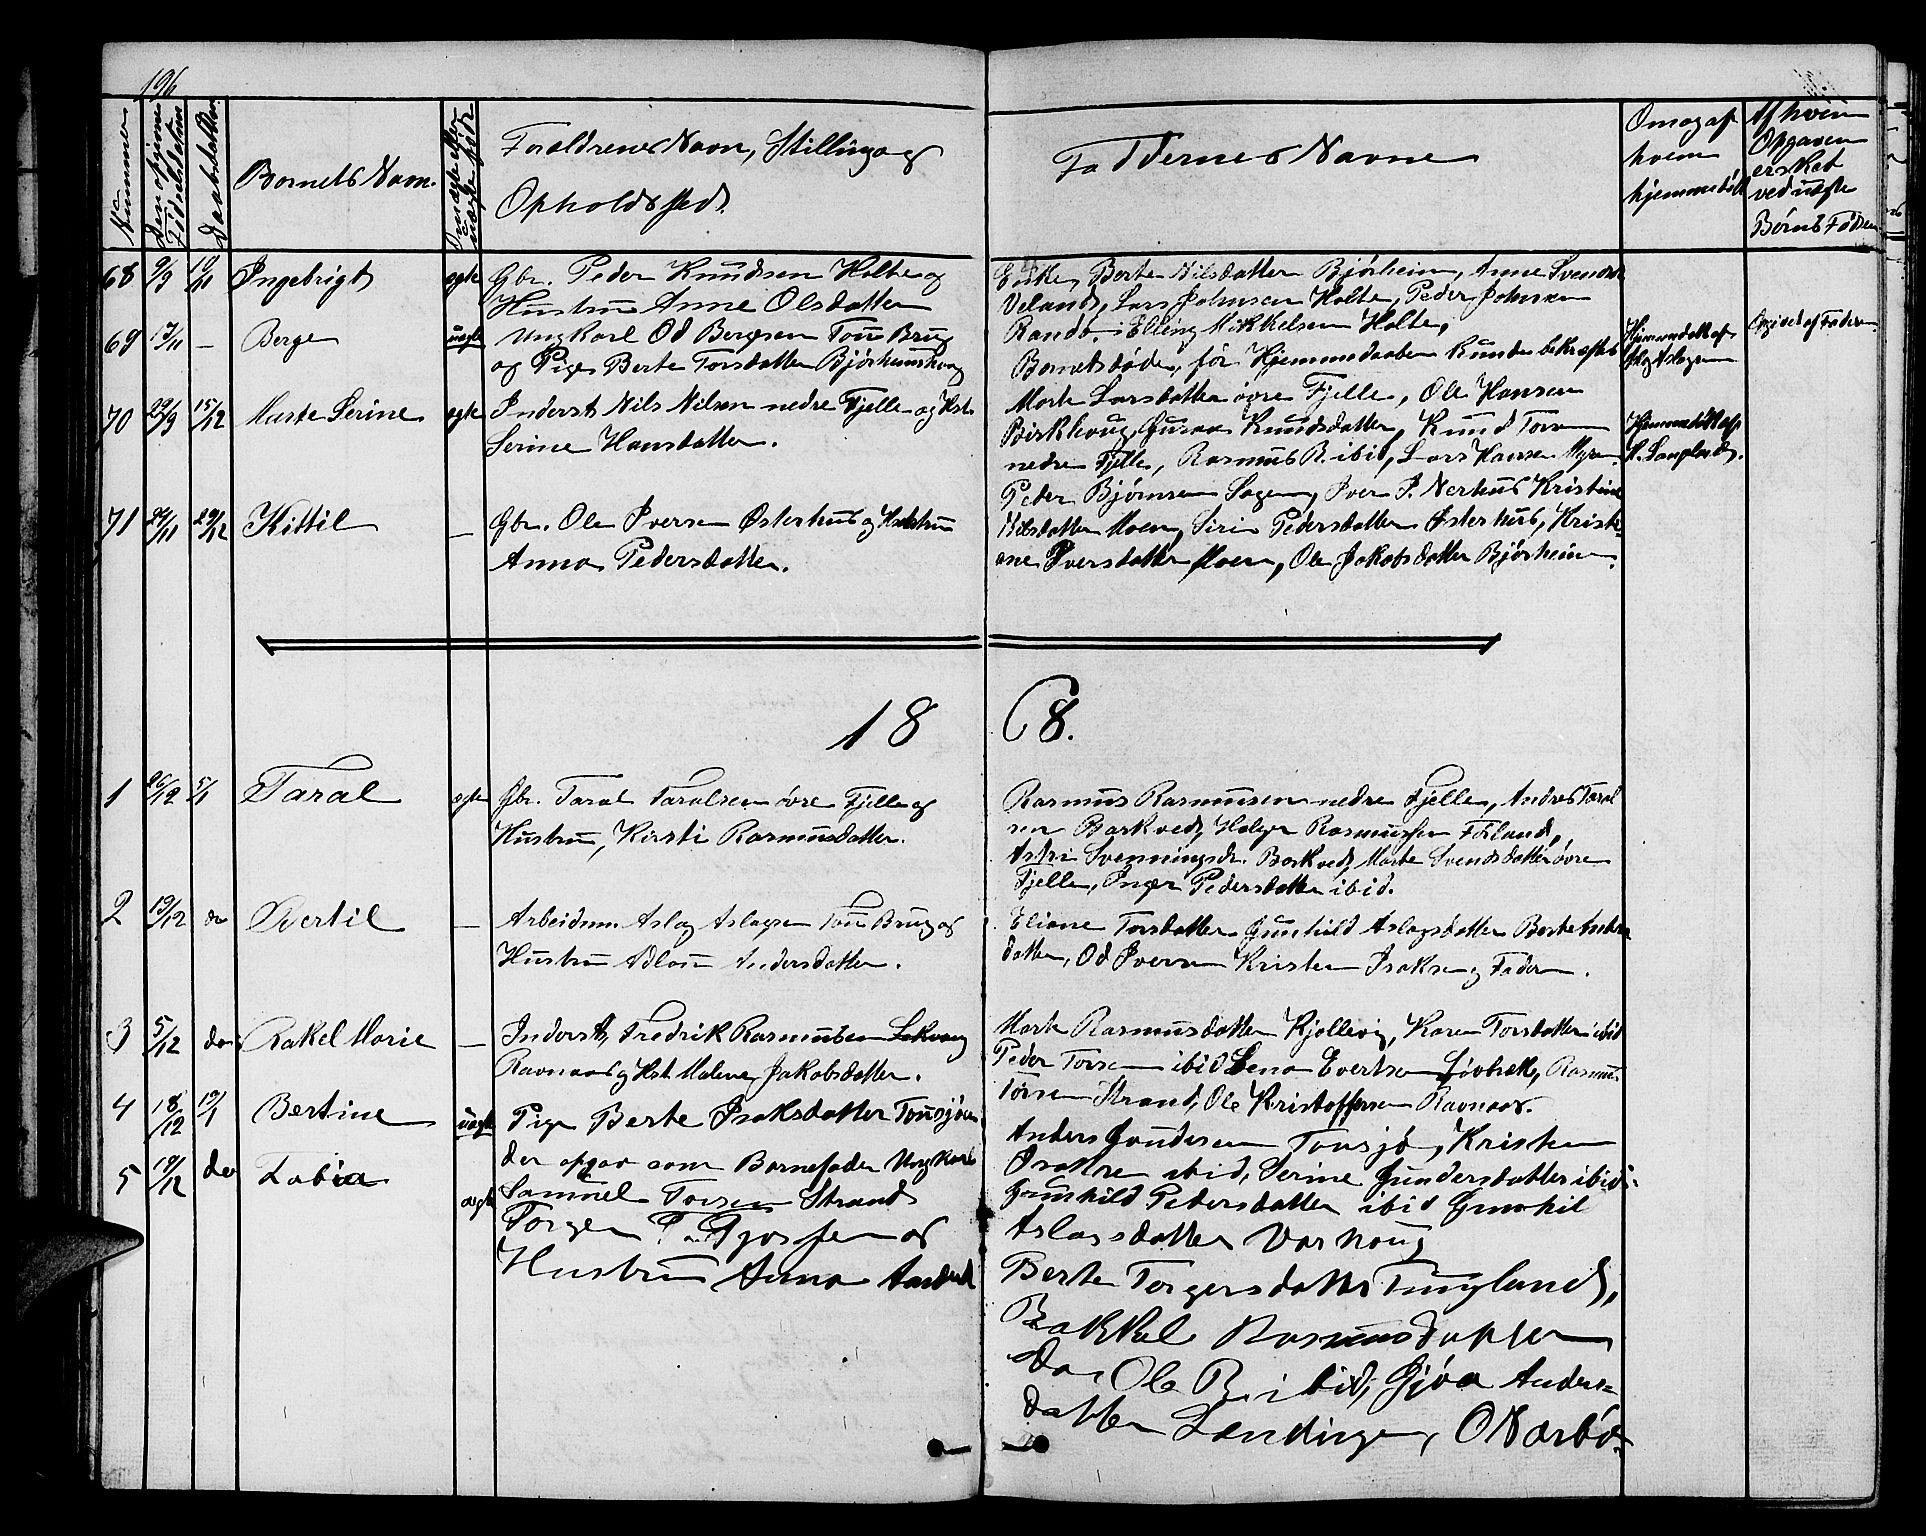 196
Nummer
Den opgivne Fødselsdatum
Daabsdatum
Barnets Navn.
Om ægte eller uægte født
Forældrenes Navn, Stilling og
Opholdssted.
Faddernes Navne
Om og af
hvem
hjemmedøbt
Af hvem
Opgaven
er sket
ved uægte
Børns Fødsel
68 9/9 Ingebrigt ægte Gbr. Peder Knudsen Holte og
Hustru Anne Olsdatter
Enke Berte Nilsdatter Bjørheim, Anne Svends
Veland, Lars Johnsen Holte, Peder Johnsen
Randø. Elling Mikkelsen Holte,
69 13/11 — Berge uægte Ungkarl Od Bergesen Tou Brug
og Pige Berte Torsdatter Bjørheimshoug
Barnet døde, før Hjemmedaaben kunde bekræftes
Hjemmedøbt af
Aslag Aslagsen
Opgivet af Faderen
70 29/9 15/12 Marte Serine ægte Inderst Nils Nilsen nedre Fjelle og Hst.
Serine Hansdatter.
Marte Larsdatter øvre Fjelle, Ole Hansen
Birkhoug, Guroa Knudsdatter, Knud Torsen
nedre Fjelle, Rasmus R. ibid, Lars Hansen Myren.
Hjemmedøbt af
71 24/11 29/12 Kittil — Gbr. Ole Iversen Østerhus og Hustru
Anna Pedersdatter.
Peder Bjørnsen Sagen, Iver P. Nerhus Kristine
Nilsdatter Moen, Siri Pedersdatter Østerhus, Kristi
ane Iversdatter Moen, Ole Jakobsdatter Bjørheim.
18 68.
1 26/12 5/1 Taral ægte Gbr. Taral Taralsen øvre Fjelle og
Hustru, Kirsti Rasmusdatter.
Rasmus Rasmussen nedre Fjelle, Andres Taral
sen Barkved, Holger Rasmussen Føland,
Astri Svenningsdr. Barkved, Marte Svendsdatter øvre
Fjelle, Inger Pedersdatter ibid.
2 19/12 do Bertil — Arbeidsm. Aslag Aslagsen Tou Brug og
Hustru Adlou Andersdatter.
Eliane Torsdatter Gunhild Aslagsdatter Berte Anders
datter, Od Iversen Kristen Isaksen og Faderen.
3 5/12 do Rakel Marie — Inderst, Fredrik Rasmussen
Ravnaas og Hst. Malene Jakobsdatter.
Marte Rasmusdatter Kjøllevig, Karen Torsdatter ibid
Peder Torsen ibid Lena Evertsen Løvbrek, Rasmus
Torsen Strand, Ole Kristoffersen Ravnaas.
4 18/12 19/1 Bertine uægte Pige Berte Isaksdatter Tousjøen
der opgav som Barnefader Ungkarl
Samuel Torsen Strand
Anders Gundersen Tousjø, Kristen
Isaksen ibid, Serine Gundersdatter ibid.
Gunhild Pedersdatter ibid Gunhil
Aslagsdatter Varhoug
5 19/12 do Tobia ægte Torger
Hustru Anna
Berte Torgersdatter Tungland,
Rakkel Rasmusdatter
do, Ole R. ibid, Gjøa Anders=
datter Lendinge, O Nærbø.